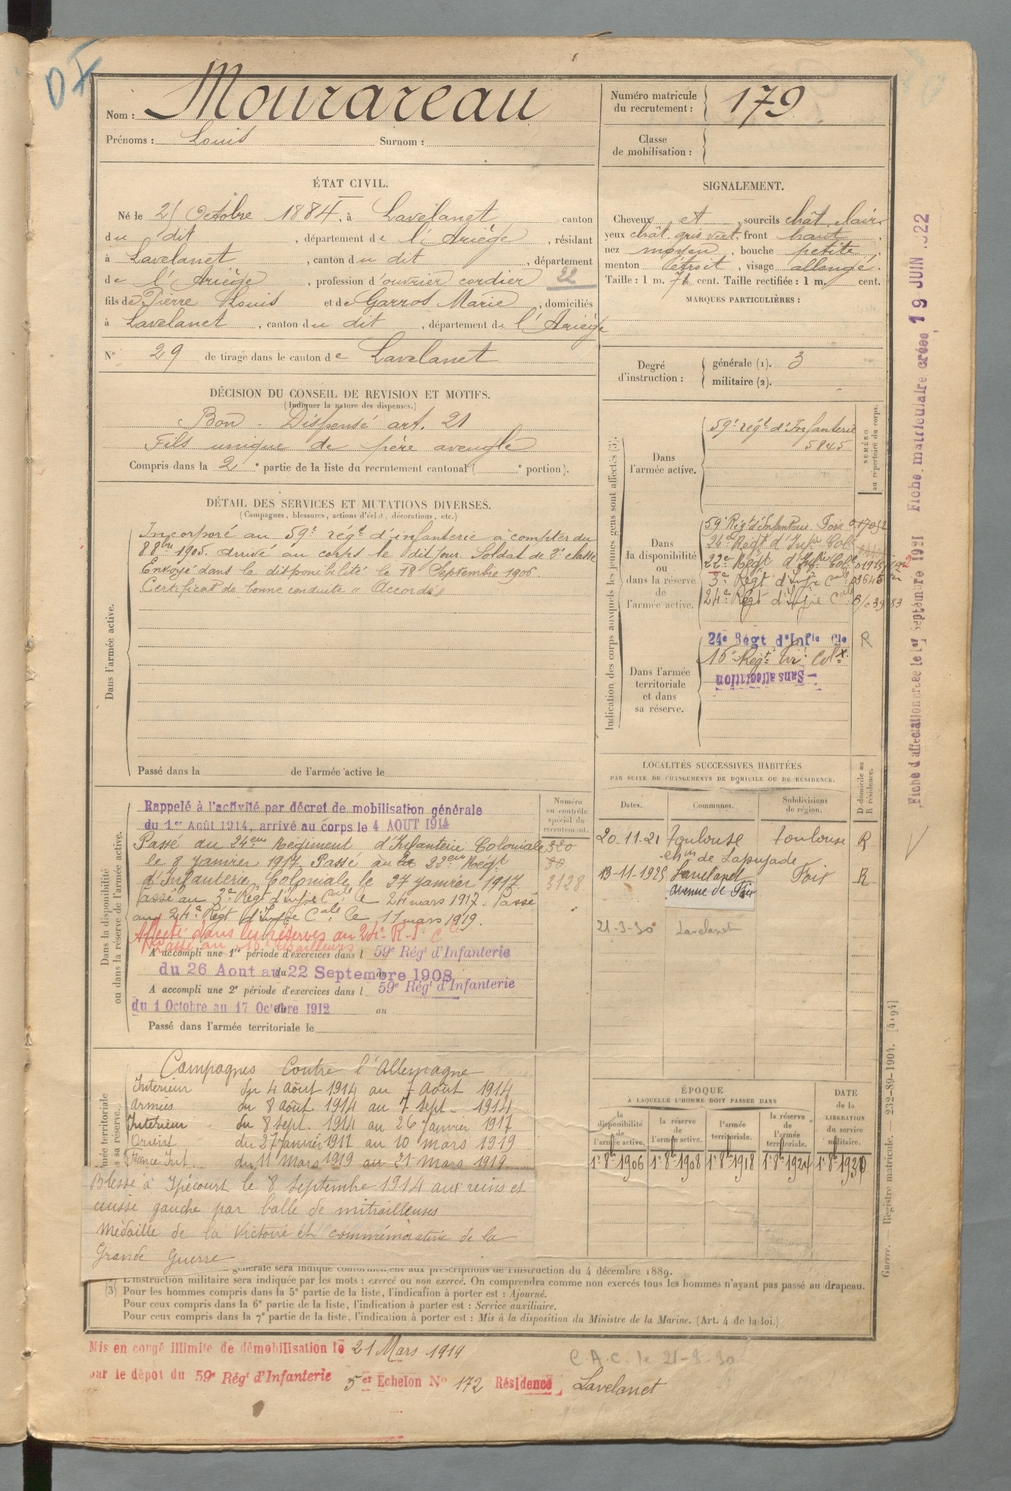 Nom : Mourareau
Prénoms : Louis Surnom :
Numéro matricule du recrutement : 179
Classe de mobilisation :
ÉTAT CIVIL.
Né le 21 Octobre 1884, à Lavelanet canton
du dit, département de l'Ariège, résidant
à Lavelanet, canton du dit, département
de l'Ariège, profession d'ouvrier cordier 22
fils de Pierre Louis et de Garros Marie, domiciliés
à Lavelanet, canton du dit, département de l'Ariège
N° 29 de tirage dans le canton de Lavelanet
SIGNALEMENT.
Cheveux et, sourcils chât. clair
yeux chât. gris vert, front haut,
nez moyen, bouche petite,
menton étroit, visage allongé.
Taille : 1 m. 71 cent. Taille rectifiée : 1 m. cent.
MARQUES PARTICULIÈRES :
Degré d'instruction : générale (1). 3
militaire (2).
DÉCISION DU CONSEIL DE REVISION ET MOTIFS.
(Indiquer la nature des dispenses.)
Bon - Dispensé art. 21
Fils unique de père aveugle
Compris dans la 2e partie de la liste du recrutement cantonal ( e portion).
DÉTAIL DES SERVICES ET MUTATIONS DIVERSES.
(Campagnes, blessures, actions d'éclat, décorations, etc.)
Dans l'armée active.
Incorporé au 59e régt d'infanterie à compter du
8 8bre 1905. Arrivé au corps le dit jour. Soldat de 2e classe
Envoyé dans la disponibilité le 18 Septembre 1906.
Certificat de bonne conduite « Accordé »
Passé dans la de l'armée active le
Indication des corps auxquels les jeunes gens sont affectés (3).
NUMÉRO au répertoire du corps.
Dans l'armée active.
59e régt d'Infanterie
5845
Dans la disponibilité ou dans la réserve de l'armée active.
59e Régt d'Infanterie Foix
24e Régt d'Infie Colle
22e Régt d'Infie Colle
3e Régt d'Infie Cale
24e Régt d'Infie Cale
Dans l'armée territoriale et dans sa réserve.
24e Régt d'Infie Cle R
16e Régt Tir. Colx
Sans affectation
Fiche d'affectation créée le 1er Septembre 1921 Fiche matriculaire créée 19 JUIN 1922
LOCALITÉS SUCCESSIVES HABITÉES
PAR SUITE DE CHANGEMENTS DE DOMICILE OU DE RÉSIDENCE.
Dates. Communes. Subdivisions de région. D domicile ou R résidence.
20.11.21 Toulouse Toulouse R
chin de Lapujade
13-11-1925 Lavelanet Foix R
avenue de Foix
21-3-30 Lavelanet
Dans la disponibilité ou dans la réserve de l'armée active.
Numéro au contrôle spécial du recrutement.
Rappelé à l'activité par décret de mobilisation générale
du 1er Août 1914, arrivé au corps le 4 AOUT 1914
Passé du 24eme Régiment d'Infanterie Coloniale
le 9 janvier 1917. Passé au 22eme Régt
d'Infanterie Coloniale le 27 janvier 1917 3128
Passé au 3e Régt d'Infie Cale le 24 mars 1917. Passé
au 24e Régt d'Infie Cale le 11 mars 1919.
Affecté dans les réserves au 24e R.I.C.
A accompli une 1re période d'exercices dans l 59e Régt d'Infanterie
du 26 Aout au 22 Septembre 1908
A accompli une 2e période d'exercices dans l 59e Régt d'Infanterie
du 1 Octobre au 17 Octobre 1912 au
Passé dans l'armée territoriale le
Campagnes Contre l'Allemagne
Intérieur du 4 août 1914 au 7 Août 1914
Armées du 8 août 1914 au 7 sept. 1914
Intérieur du 8 sept. 1914 au 26 janvier 1917
Orient du 27 janvier 1917 au 10 mars 1919
France Int. du 11 Mars 1919 au 21 Mars 1919
Blessé à Ipécourt le 8 septembre 1914 aux reins et
cuisse gauche par balle de mitrailleuses
Médaille de la Victoire et commémorative de la
Grande Guerre
ÉPOQUE
À LAQUELLE L'HOMME DOIT PASSER DANS
la disponibilité de l'armée active. la réserve de l'armée active. l'armée territoriale. la réserve de l'armée territoriale.
DATE de la LIBÉRATION du service militaire.
1er 8b 1906 1er 8b 1908 1er 8b 1918 1er 8b 1924
générale sera indiqué conformément aux prescriptions de l'instruction du 4 décembre 1889.
L'instruction militaire sera indiquée par les mots : exercé ou non exercé. On comprendra comme non exercés tous les hommes n'ayant pas passé au drapeau.
(3) Pour les hommes compris dans la 5e partie de la liste, l'indication à porter est : Ajourné.
Pour ceux compris dans la 6e partie de la liste, l'indication à porter est : Service auxiliaire.
Pour ceux compris dans la 7e partie de la liste, l'indication à porter est : Mis à la disposition du Ministre de la Marine. (Art. 4 de la loi.)
Guerre. — Registre matricule. — 232-89-1904. [4194]
Mis en congé illimité de démobilisation le 21 Mars 1919
par le dépôt du 59e Régt d'Infanterie 5er Echelon No 172 Résidence Lavelanet
C.A.C. le 21-3-30